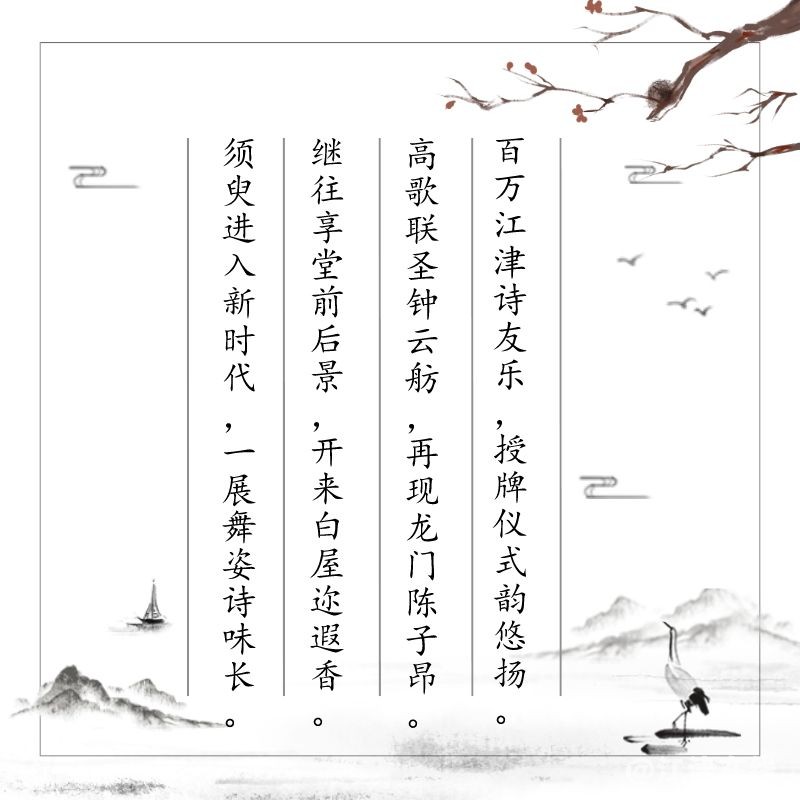 百万江津诗友乐，授牌仪式韵悠扬。
高歌联圣钟云舫，再现龙门陈子昂。
继往享堂前后景，开来白屋迩遐香。
须臾进入新时代，一展舞姿诗味长。